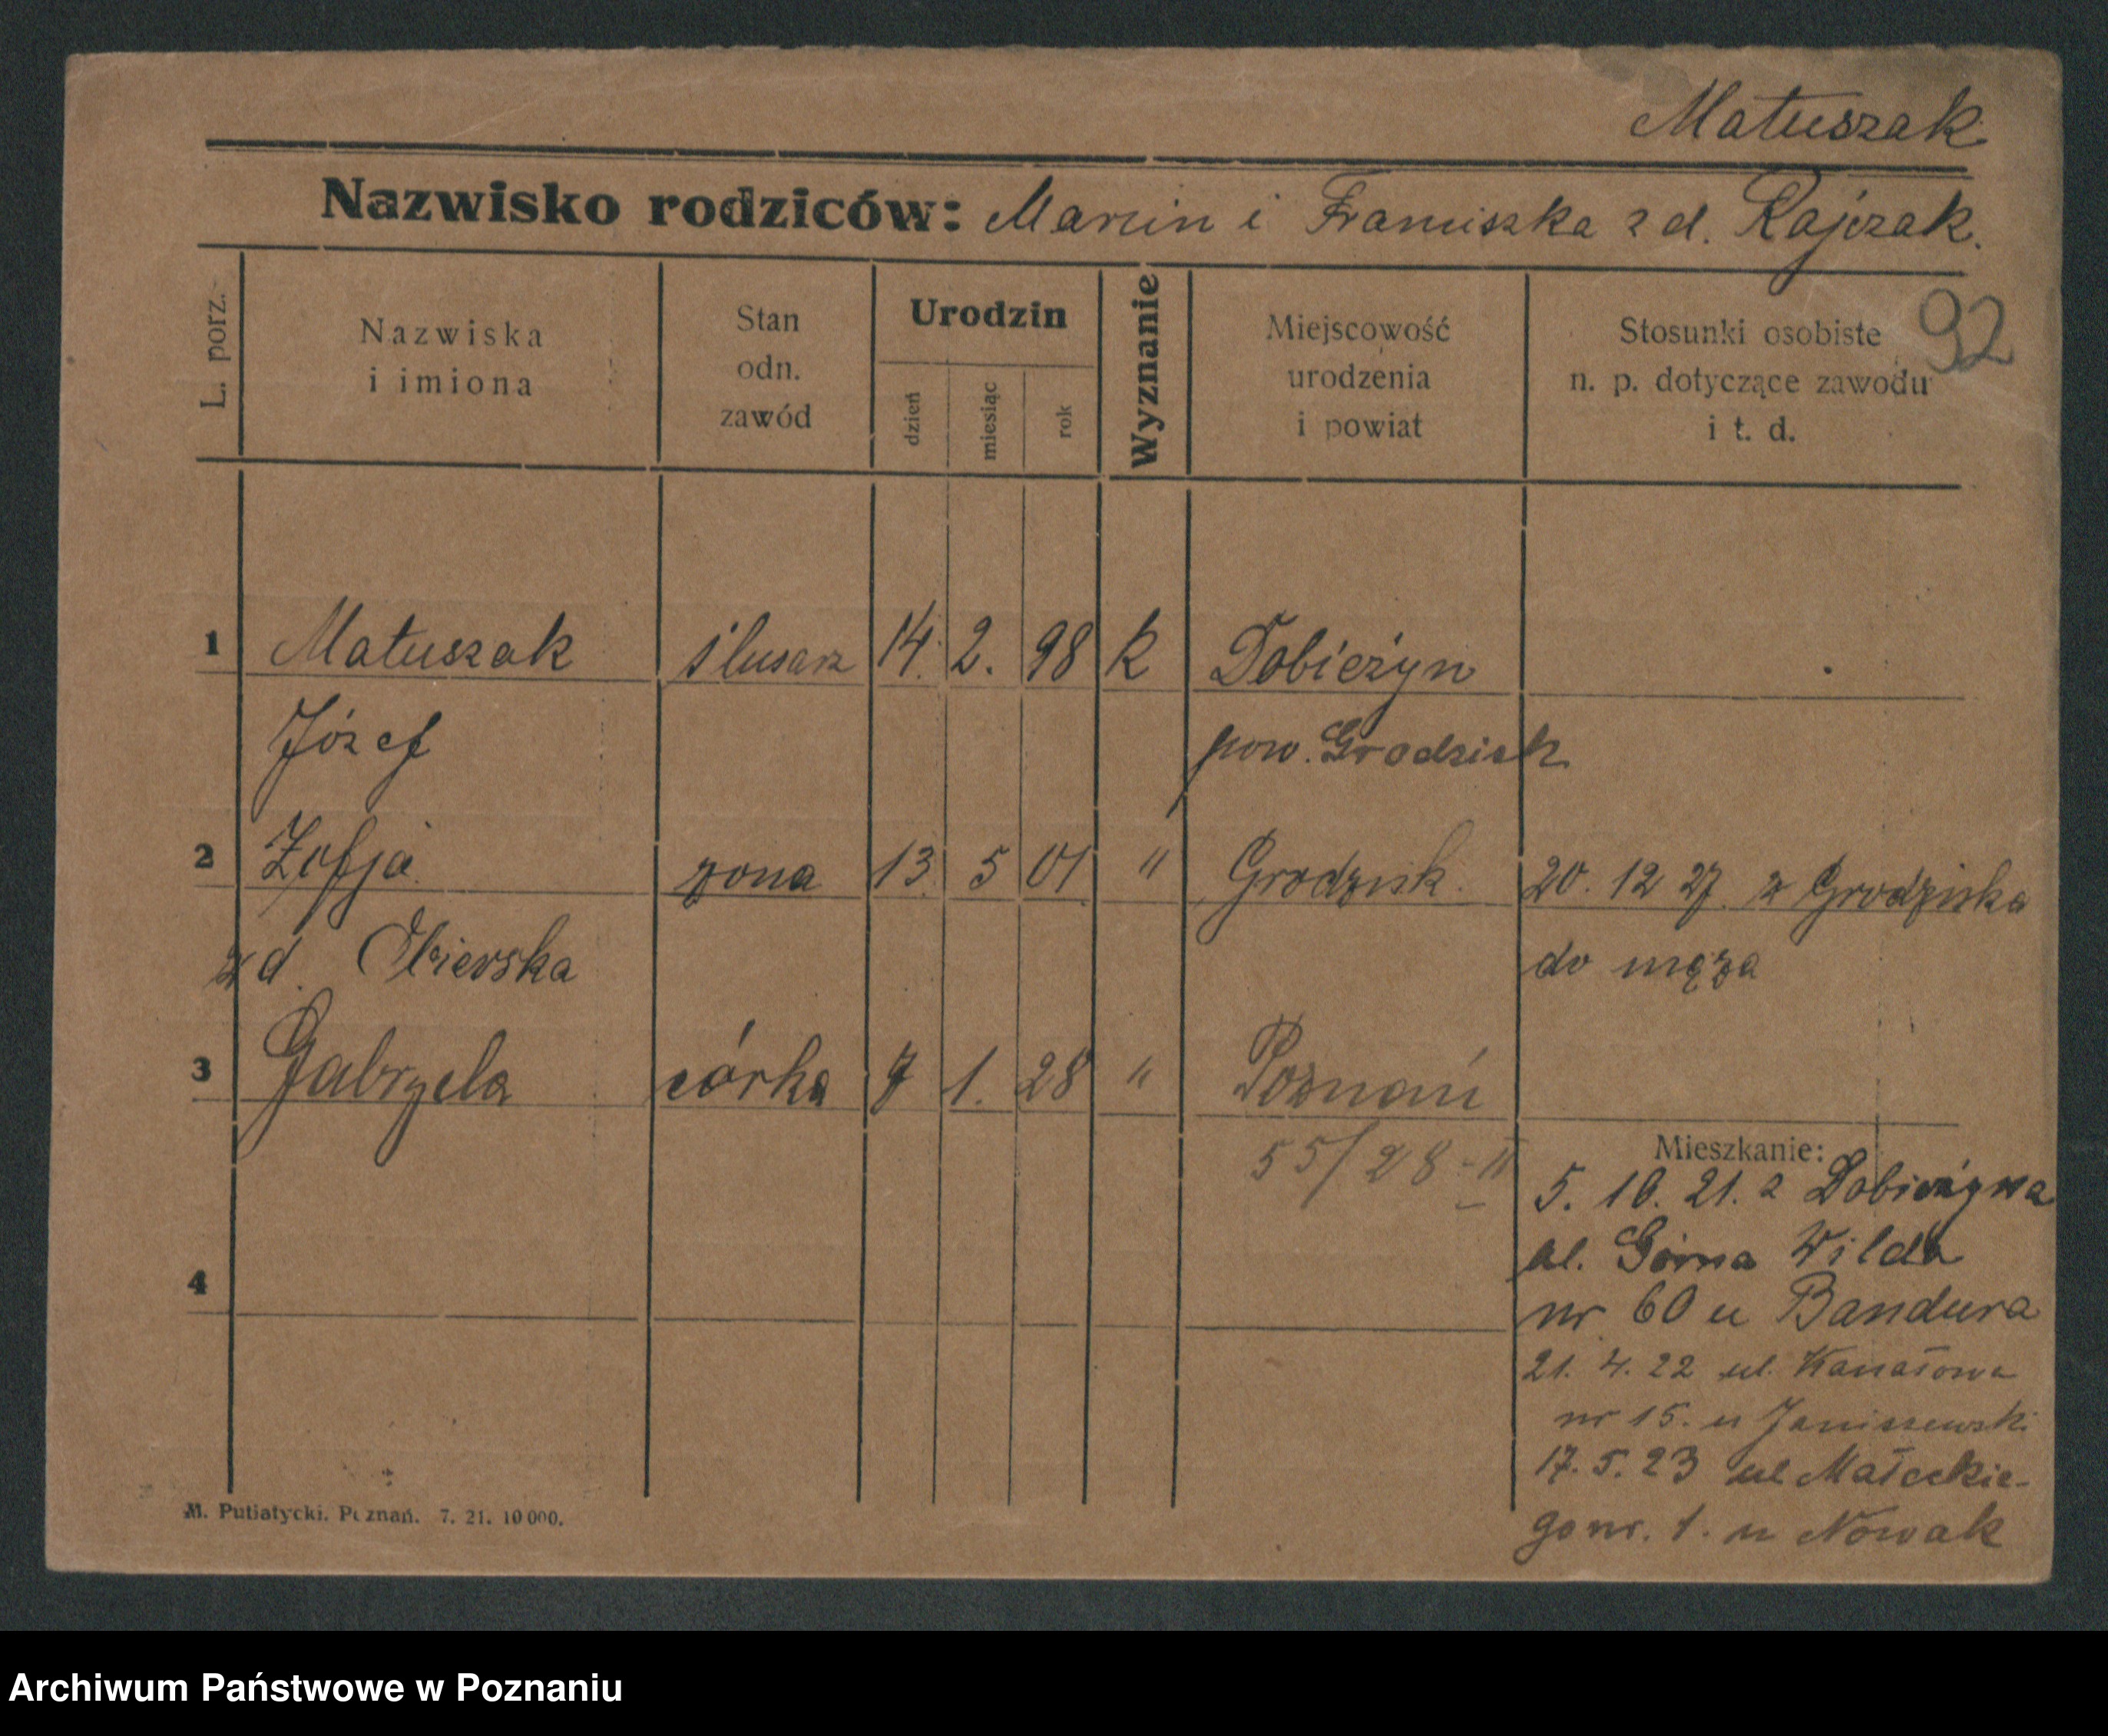 Matuszak
Nazwisko rodziców: Marcin i Franciszka z d. Rajczak.
92
L. porz.
Nazwiska
i imiona
Stan
odn.
zawód
Urodzin
dzień
miesiąc
rok
Wyznanie
Miejscowość
urodzenia
i powiat
Stosunki osobiste
n. p. dotyczące zawodu
i t. d.
1 Matuszak ślusarz 14. 2. 98 k Dobieżyn
Józef pow. Grodzisk
2 Zofja żona 13 5 01 " Grodzisk 20. 12 27 z Grodziska
z d. do męża
3 Gabryela córka 7 1. 28 " Poznań
55/28-II
Mieszkanie:
5. 10. 21. z Dobieżyna
ul. Górna Wilda
nr 60 u Bandura
4
21. 4. 22 ul. Kanałowa
nr 15. u Janiszewski
17. 5. 23 ul Małeckie-
go nr. 1. u Nowak
M. Putiatycki. Poznań. 7. 21. 10 000.
Archiwum Państwowe w Poznaniu